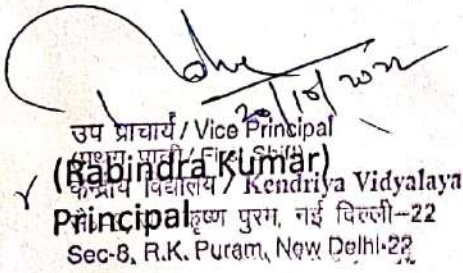 20/10/2022
उप प्राचार्य / Vice Principal
(प्रथम पाली / First Shift)
(Rabindra Kumar)
केन्द्रीय विद्यालय / Kendriya Vidyalaya
Principal कृष्ण पुरम, नई दिल्ली-22
Sec-8, R.K. Puram, New Delhi-22